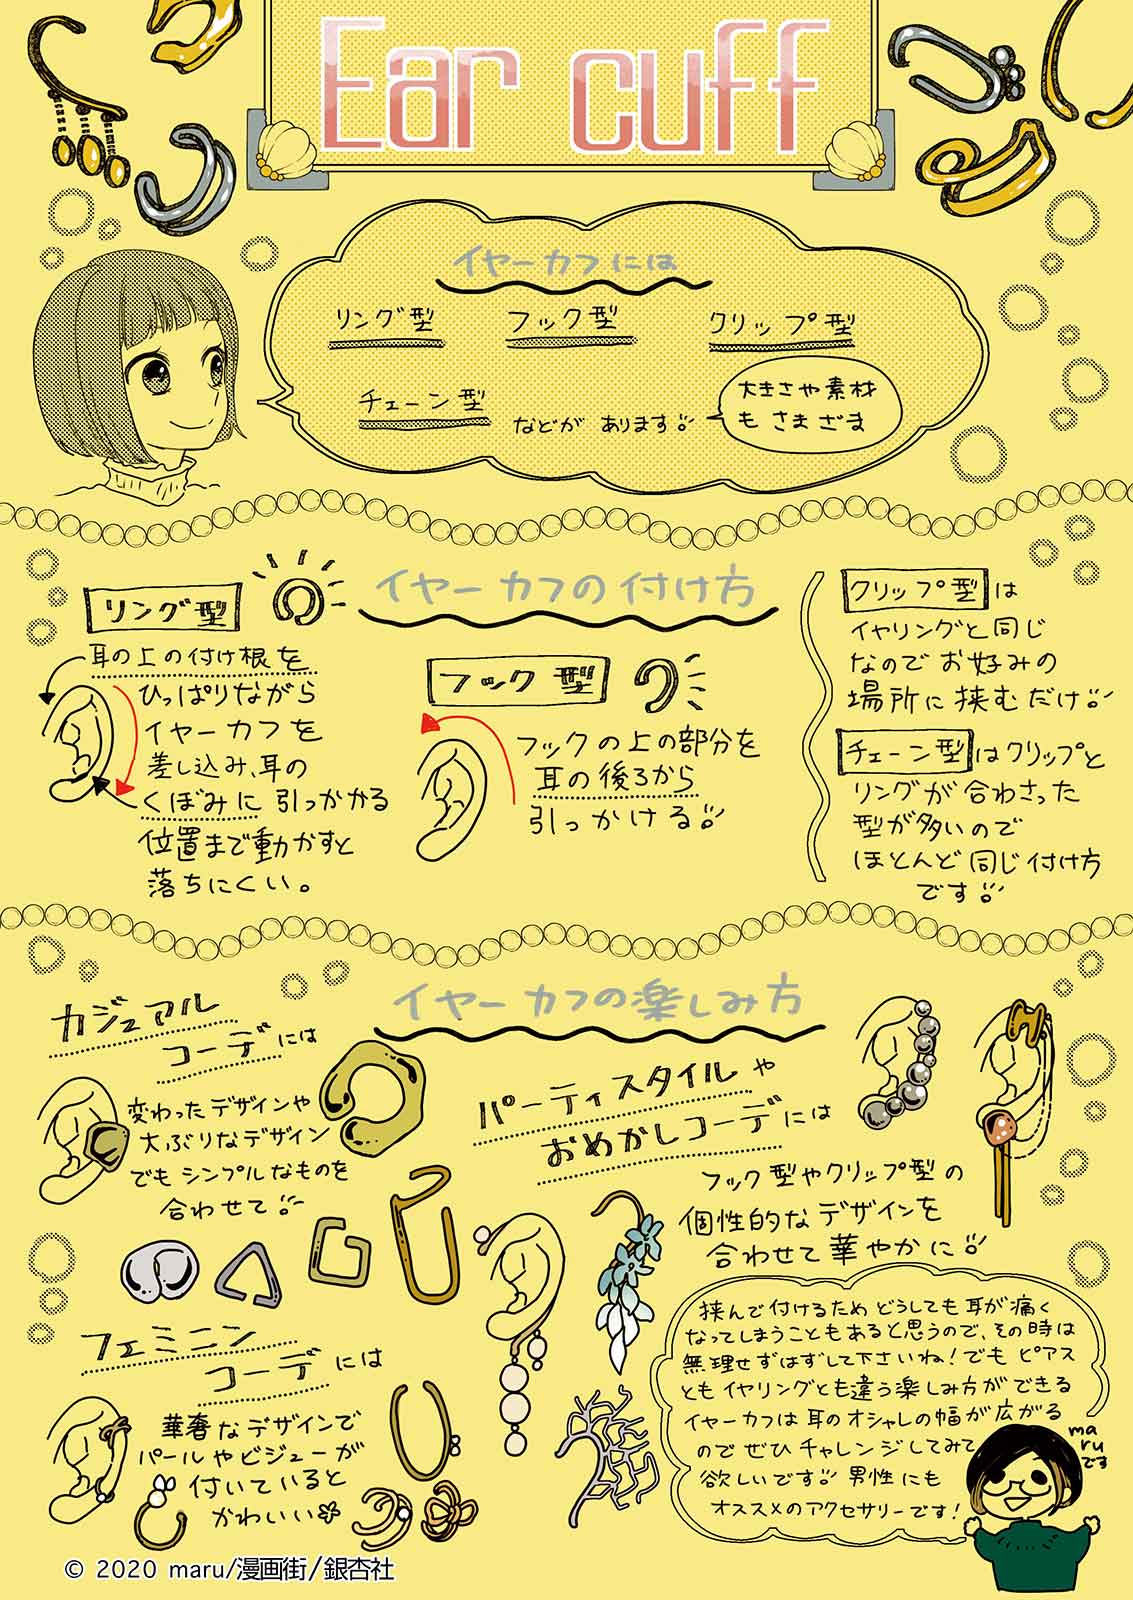 Ear cuff
イヤーカフには
リング型 フック型 クリップ型
チェーン型 などがあります
大きさや素材
もさまざま
イヤーカフの付け方
リング型
耳の上の付け根を
ひっぱりながら
イヤーカフを
差し込み、耳の
くぼみに引っかかる
位置まで動かすと
落ちにくい。
フック型
フックの上の部分を
耳の後ろから
引っかける
クリップ型は
イヤリングと同じ
なのでお好みの
場所に挟むだけ
チェーン型はクリップと
リングが合わさった
型が多いので
ほとんど同じ付け方
です
イヤーカフの楽しみ方
カジュアル
コーデには
変わったデザインや
大ぶりなデザイン
でもシンプルなものを
合わせて
フェミニン
コーデには
華奢なデザインで
パールやビジューが
付いていると
かわいい
パーティスタイルや
おめかしコーデには
フック型やクリップ型の
個性的なデザインを
合わせて華やかに
挟んで付けるためどうしても耳が痛く
なってしまうこともあると思うので、その時は
無理せずはずして下さいね!でもピアス
ともイヤリングとも違う楽しみ方ができる
イヤーカフは耳のオシャレの幅が広がる
のでぜひチャレンジしてみて
欲しいです 男性にも
オススメのアクセサリーです!
ma
ru
です
© 2020 maru/漫画街/銀杏社